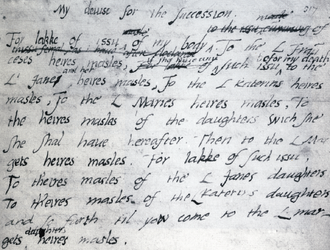 My deuise for the Succession.
For lakke of issu of my body To the L Fran
ceses heires masles, if she have any such issu befor my death to the
L' Janes and her heires masles, To the L Katerins heires
masles, To the L Maries heires masles, To
the heires masles of the daughters wich she
she shal haue hereafter. Then to the L Mar
gets heires masles. For lakke of such issu,
To theires masles of the L Janes daughters
To theires masles of the L Katerins daughters
and so forth til you come to the L mar
gets daughters heires masles.